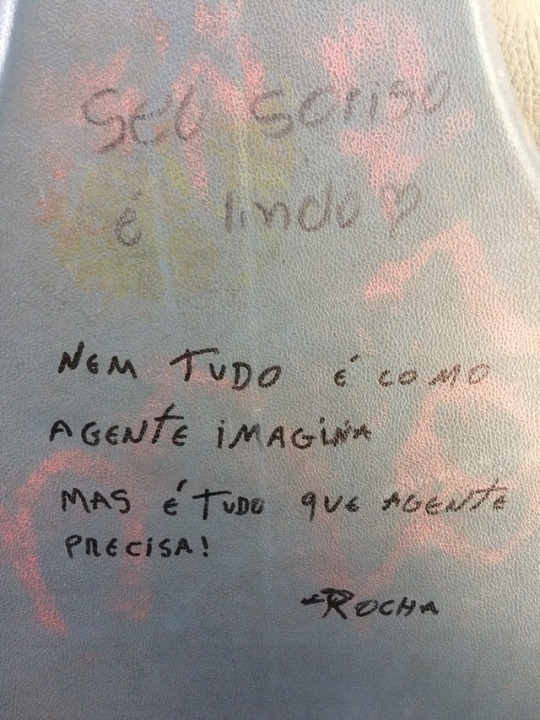 Seu soriso
é lindo ♡
NEM TUDO É COMO
AGENTE IMAGINA
MAS É TUDO QUE AGENTE
PRECISA!
-ROCHA